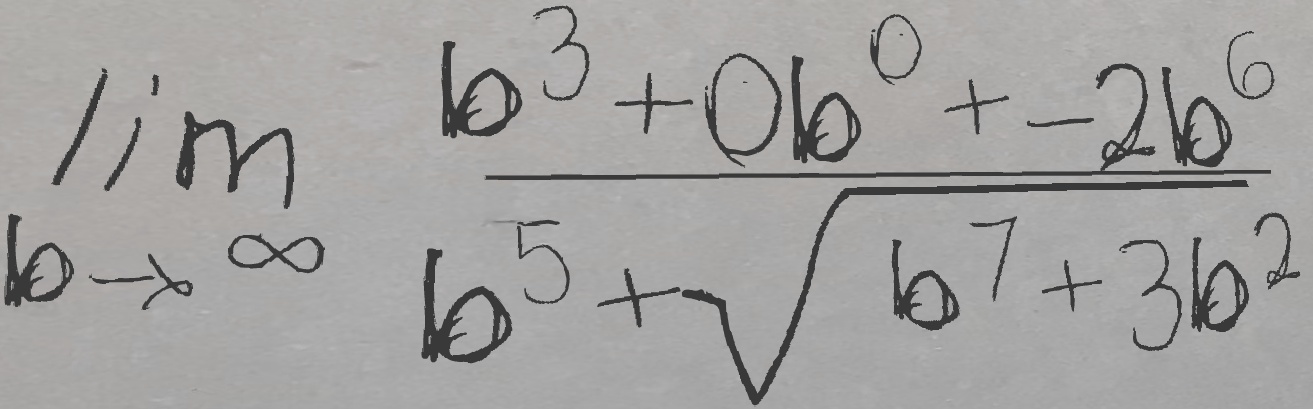 \lim_{b \to \infty} \frac{b^3 + 0b^0 + -2b^6}{b^5 + \sqrt{b^7 + 3b^2}}